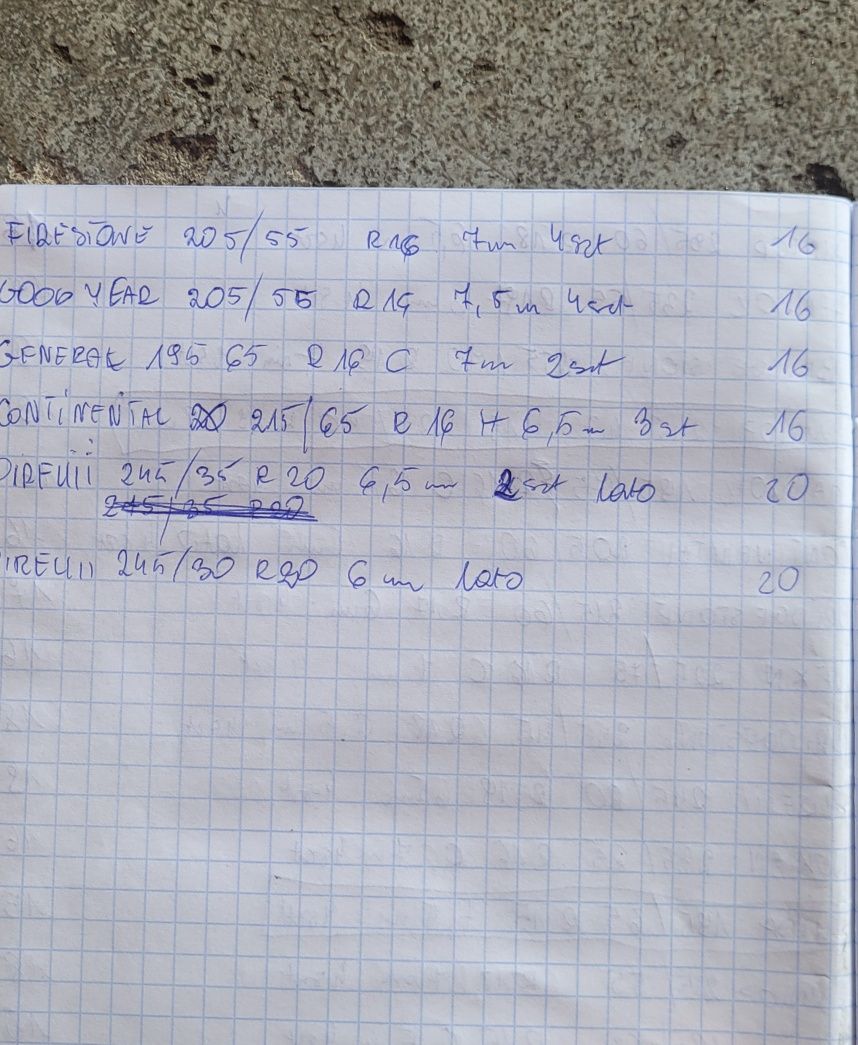 FIRESTONE 205/55 R16 7m 4szt 16
GOOD YEAR 205/55 R16 7,5m 4szt 16
GENERAL 195 65 R16 C 7m 2szt 16
CONTINENTAL 215/65 R 16 H 6,5m 3szt 16
PIRELLI 245/35 R20 6,5mm 2szt lato 20
245/35 R20
PIRELLI 245/30 R20 6 mm lato 20